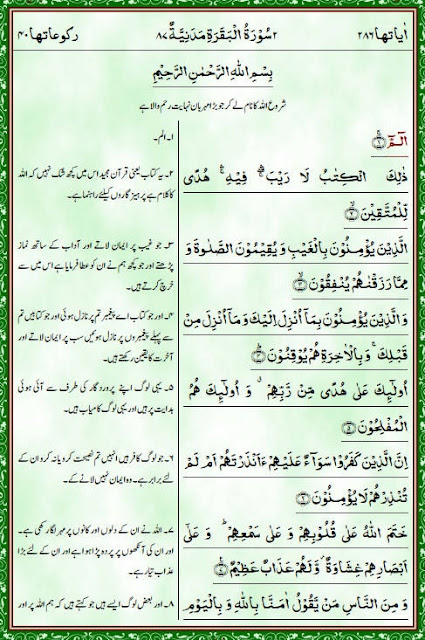 اٰیاتھا۲۸۶ ۲سُوْرَۃُ الْبَقَرَۃِ مَدَنِیَّۃٌ۸۷ رکوعاتھا۴۰
بِسْمِ اللّٰهِ الرَّحْمٰنِ الرَّحِیْمِ
شروع اللہ کا نام لے کر جو بڑا مہربان نہایت رحم والا ہے
الٓـمّٓ ۚ﴿۱﴾
ذٰلِکَ الْکِتٰبُ لَا رَیْبَ ۚۖۛ فِیْهِ ۚۛ هُدًی
لِّلْمُتَّقِیْنَ ۙ﴿۲﴾
الَّذِیْنَ یُؤْمِنُوْنَ بِالْغَیْبِ وَ یُقِیْمُوْنَ الصَّلٰوةَ وَ
مِمَّا رَزَقْنٰهُمْ یُنْفِقُوْنَ ۙ﴿۳﴾
وَ الَّذِیْنَ یُؤْمِنُوْنَ بِمَاۤ اُنْزِلَ اِلَیْکَ وَ مَاۤ اُنْزِلَ مِنْ
قَبْلِکَ ۚ وَ بِالْاٰخِرَةِ هُمْ یُوْقِنُوْنَ ؕ﴿۴﴾
اُولٰٓئِکَ عَلٰی هُدًی مِّنْ رَّبِّهِمْ ٭ وَ اُولٰٓئِکَ هُمُ
الْمُفْلِحُوْنَ ﴿۵﴾
اِنَّ الَّذِیْنَ کَفَرُوْا سَوَآءٌ عَلَیْهِمْ ءَاَنْذَرْتَهُمْ اَمْ لَمْ
تُنْذِرْهُمْ لَا یُؤْمِنُوْنَ ﴿۶﴾
خَتَمَ اللّٰهُ عَلٰی قُلُوْبِهِمْ وَ عَلٰی سَمْعِهِمْ ؕ وَ عَلٰۤی
اَبْصَارِهِمْ غِشَاوَةٌ ۫ وَّ لَهُمْ عَذَابٌ عَظِیْمٌ ﴿۷﴾
وَ مِنَ النَّاسِ مَنْ یَّقُوْلُ اٰمَنَّا بِاللّٰهِ وَ بِالْیَوْمِ
۱۔ الم۔
۲۔ یہ کتاب یعنی قرآن مجید اس میں کچھ شک نہیں کہ اللہ
کا کلام ہے پرہیزگاروں کیلئے راہنما ہے۔
۳۔ جو غیب پر ایمان لاتے اور آداب کے ساتھ نماز
پڑھتے اور جو کچھ ہم نے ان کو عطا فرمایا ہے اس میں سے
خرچ کرتے ہیں۔
۴۔ اور جو کتاب اے پیغمبر تم پر نازل ہوئی اور جو کتابیں تم
سے پہلے پیغمبروں پر نازل ہوئیں سب پر ایمان لاتے اور
آخرت کا یقین رکھتے ہیں۔
۵۔ یہی لوگ اپنے پروردگار کی طرف سے آئی ہوئی
ہدایت پر ہیں اور یہی لوگ کامیاب ہیں۔
۶۔ جو لوگ کافر ہیں انہیں تم نصیحت کرو یا نہ کرو ان کے
لئے برابر ہے۔ وہ ایمان نہیں لانے کے۔
۷۔ اللہ نے ان کے دلوں اور کانوں پر مہر لگا رکھی ہے۔
اور ان کی آنکھوں پر پردہ پڑا ہوا ہے اور ان کے لئے بڑا
عذاب تیار ہے۔
۸۔ اور بعض لوگ ایسے ہیں جو کہتے ہیں کہ ہم اللہ پر اور